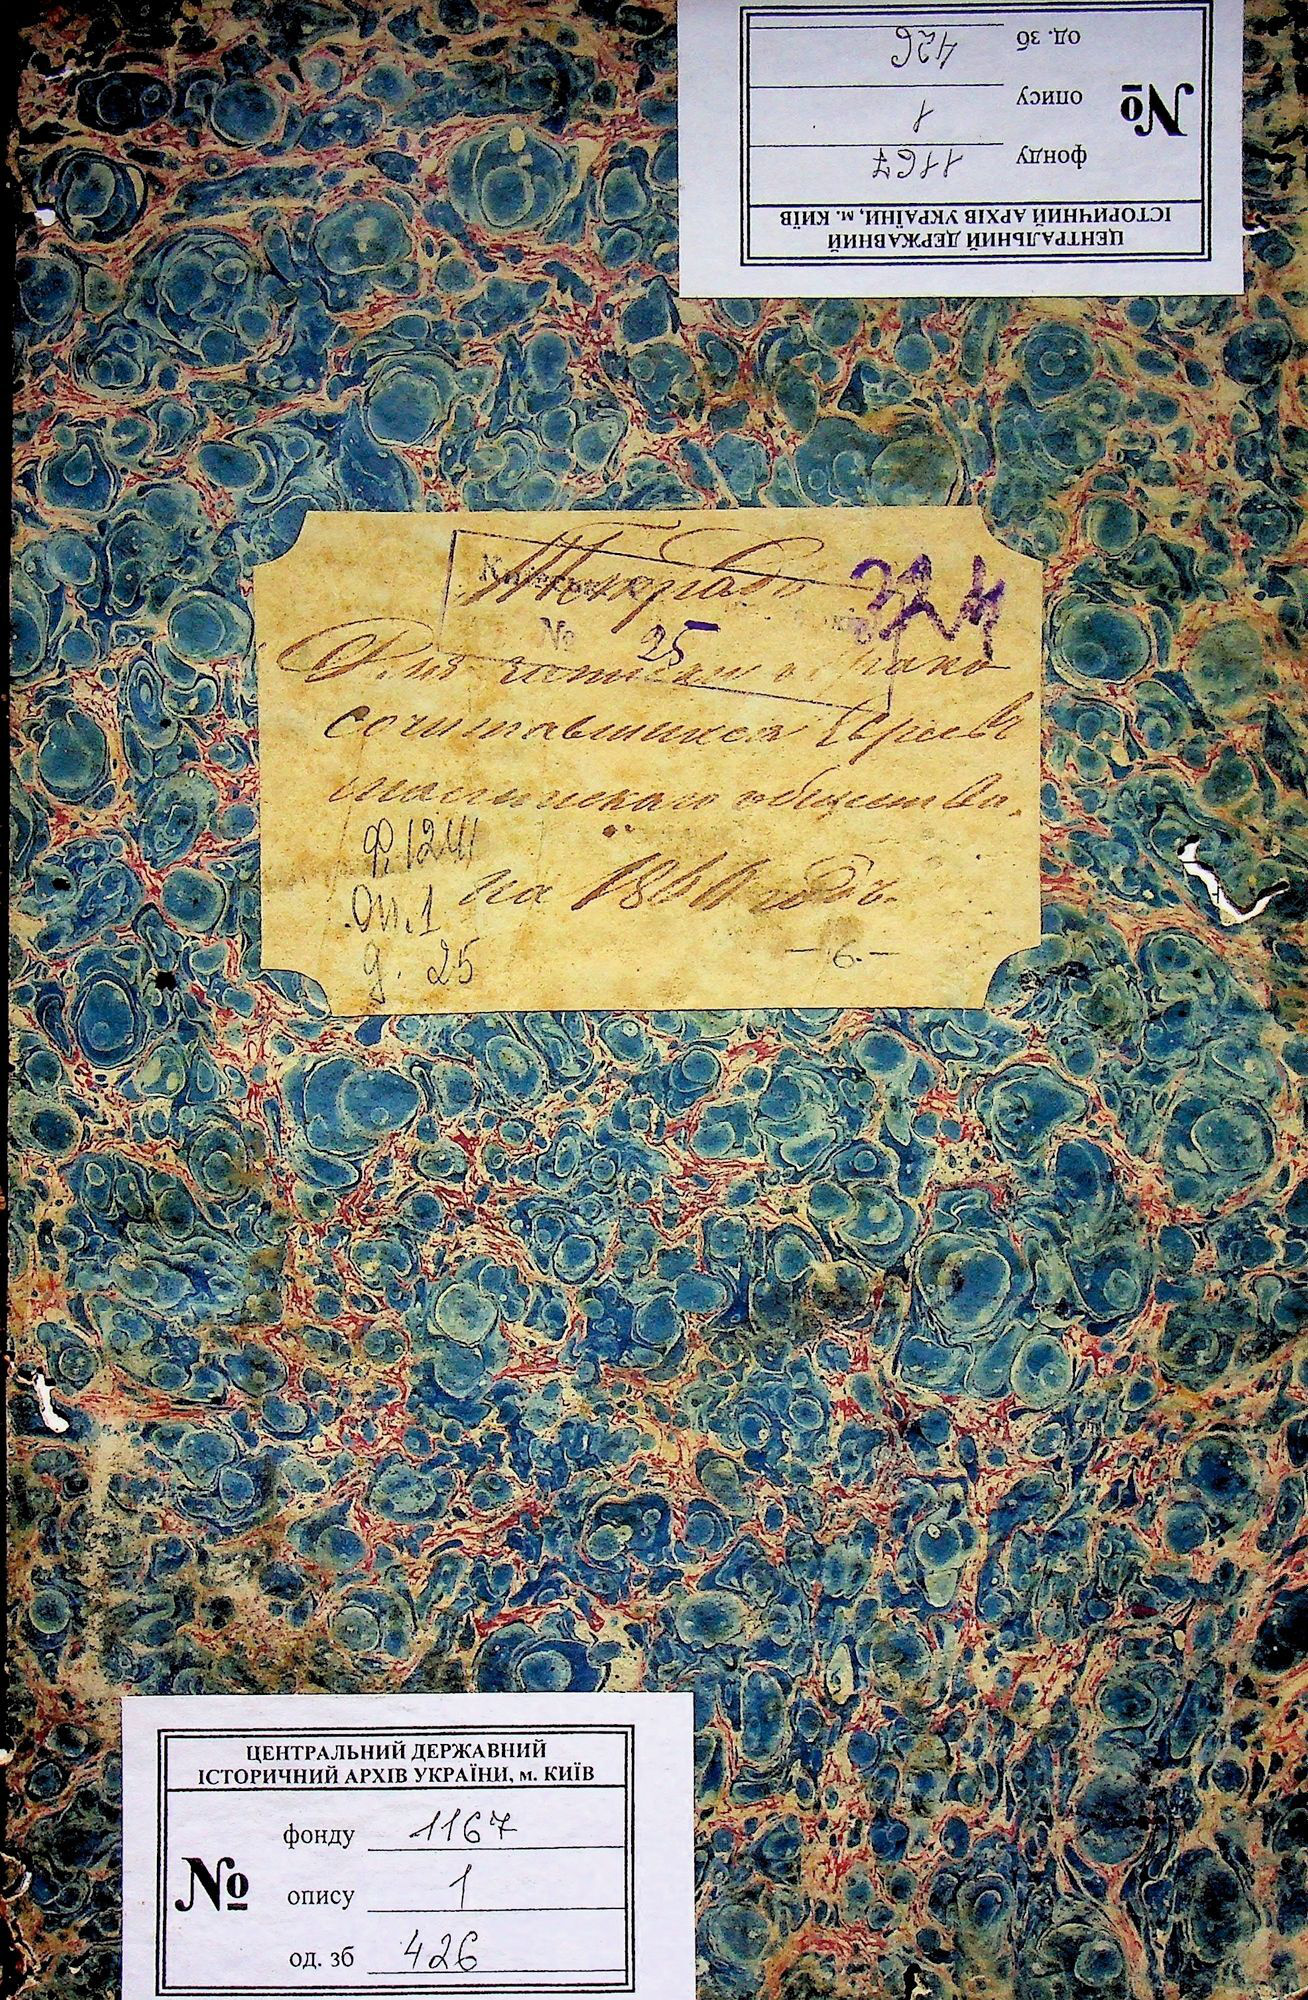 ЦЕНТРАЛЬНИЙ ДЕРЖАВНИЙ
ІСТОРИЧНИЙ АРХІВ УКРАЇНИ, м. КИЇВ
№
фонду 1167
опису 1
од. зб 426
Тетрадь
№ 25
Для записки о брако
сочитавшихся Евреевъ
общества.
на 18 годъ.
ф. 1241
оп. 1
д. 25
- 6. -
ЦЕНТРАЛЬНИЙ ДЕРЖАВНИЙ
ІСТОРИЧНИЙ АРХІВ УКРАЇНИ, м. КИЇВ
№
фонду 1167
опису 1
од. зб 426